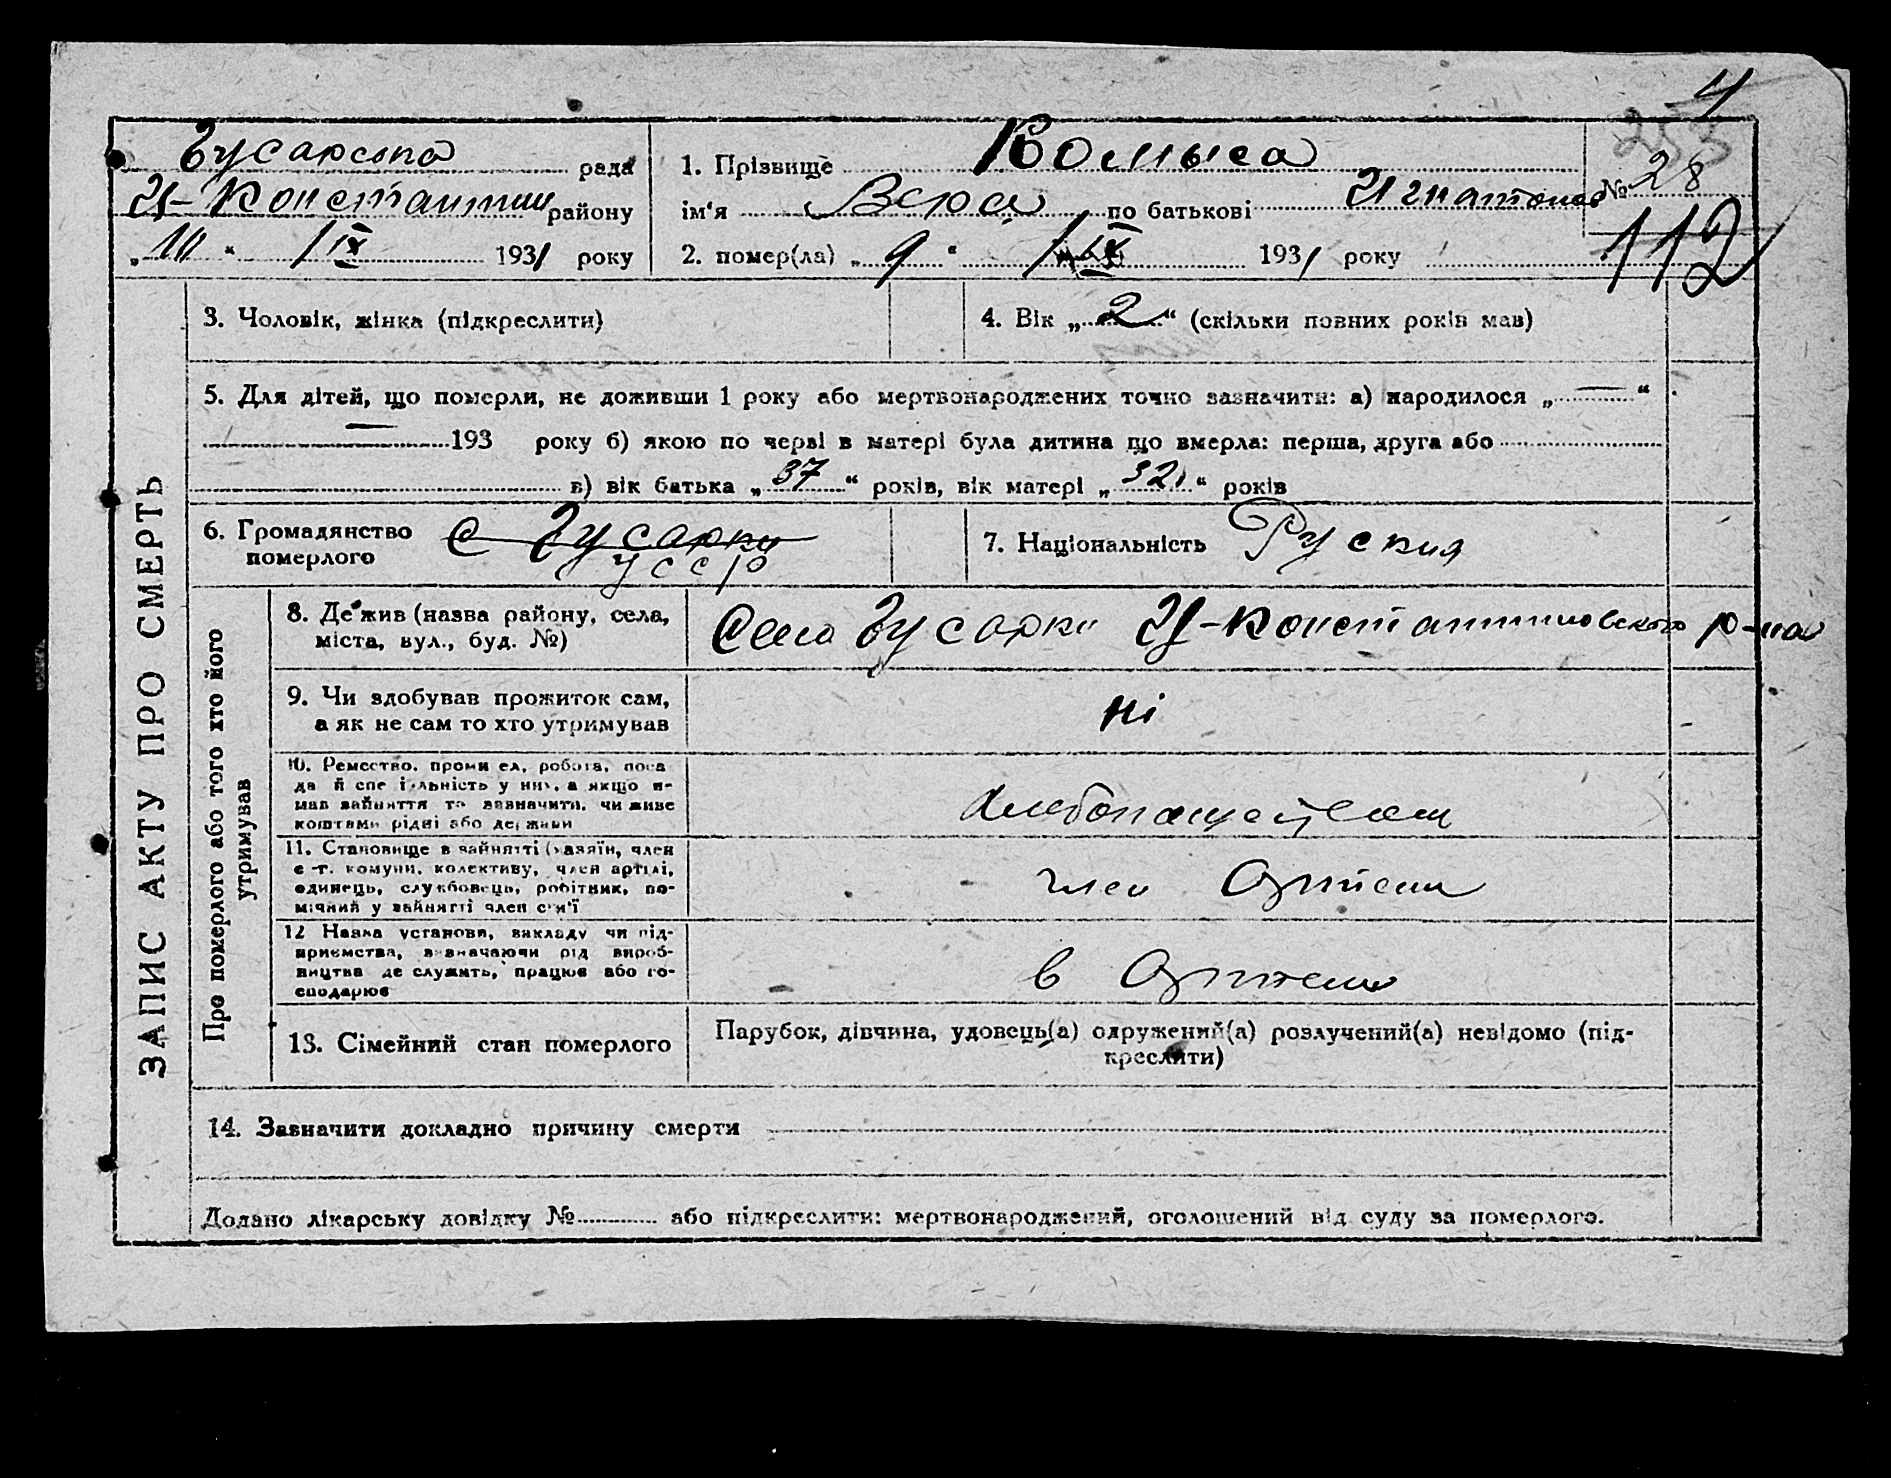 4
253
Гусарска рада
Ц-Констянтин району
„10" IX 1931 року
1. Прізвище Комыса
ім'я Вера по батькові Игнатовна
2. помер(ла) „9" IX 1931 року
№ 28
112
ЗАПИС АКТУ ПРО СМЕРТЬ
3. Чоловік, жінка (підкреслити)
4. Вік „2" (скільки повних років мав)
5. Для дітей, що померли, не доживши 1 року або мертвонароджених точно зазначити: а) народилося „—"
— 193 року б) якою по черві в матері була дитина що вмерла: перша, друга або
в) вік батька „37" років, вік матері „32" років
6. Громадянство померлого с Гусарки
УССР
7. Національність Руския
Про померлого або того хто його утримував
8. Де жив (назва району, села,
міста, вул., буд. №)
Село Гусарки Ц-Константиновского р-на
9. Чи здобував прожиток сам,
а як не сам то хто утримував
ні
10. Ремество, промисел, робота, поса
да й спеціяльність у них, а якщо н-
мав зайняття то зазначити, чи живе
коштами рідні або держави
Хлебопашеством
11. Становище в зайнятті (хазяїн, член
с-г. комуни, колективу, член артілі,
одинець, службовець, робітник, по-
мічний у зайнятті член сім'ї
член Артели
12 Назва установи, викладу чи під-
приємства, взначаючи рід вироб-
ництва де служить, працює або го-
сподарює
в Артели
13. Сімейний стан померлого
Парубок, дівчина, удовець(а) одружений(а) розлучений(а) невідомо (під-
креслити)
14. Зазначити докладно причину смерти
Додано лікарську довідку № або підкреслити: мертвонароджений, оголошений від суду за померлого.